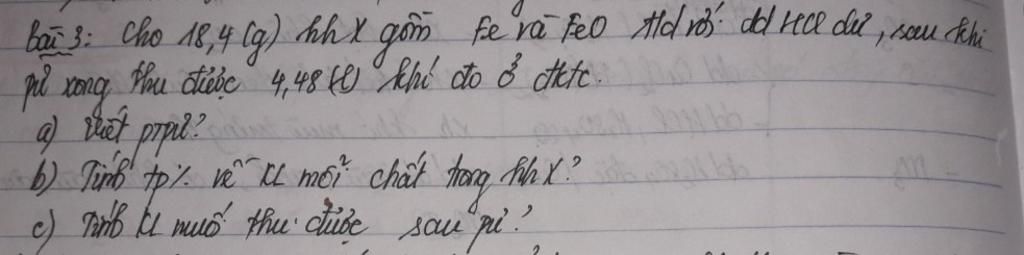 Bài 3: Cho 18,4 (g) hh X gồm Fe và FeO t/d với dd HCl dư, sau khi
pứ xong thu được 4,48 (l) khí đo ở đktc.
a) Viết ptpứ?
b) Tính tp% về KL mỗi chất trong hh X?
c) Tính KL muố thu được sau pứ?